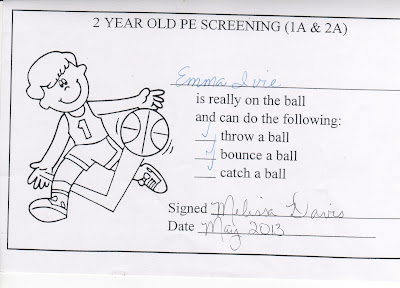 2 YEAR OLD PE SCREENING (1A & 2A)
Emma Ivie
is really on the ball
and can do the following:
✓ throw a ball
✓ bounce a ball
✓ catch a ball
1
Signed Melissa Davis
Date May 2013